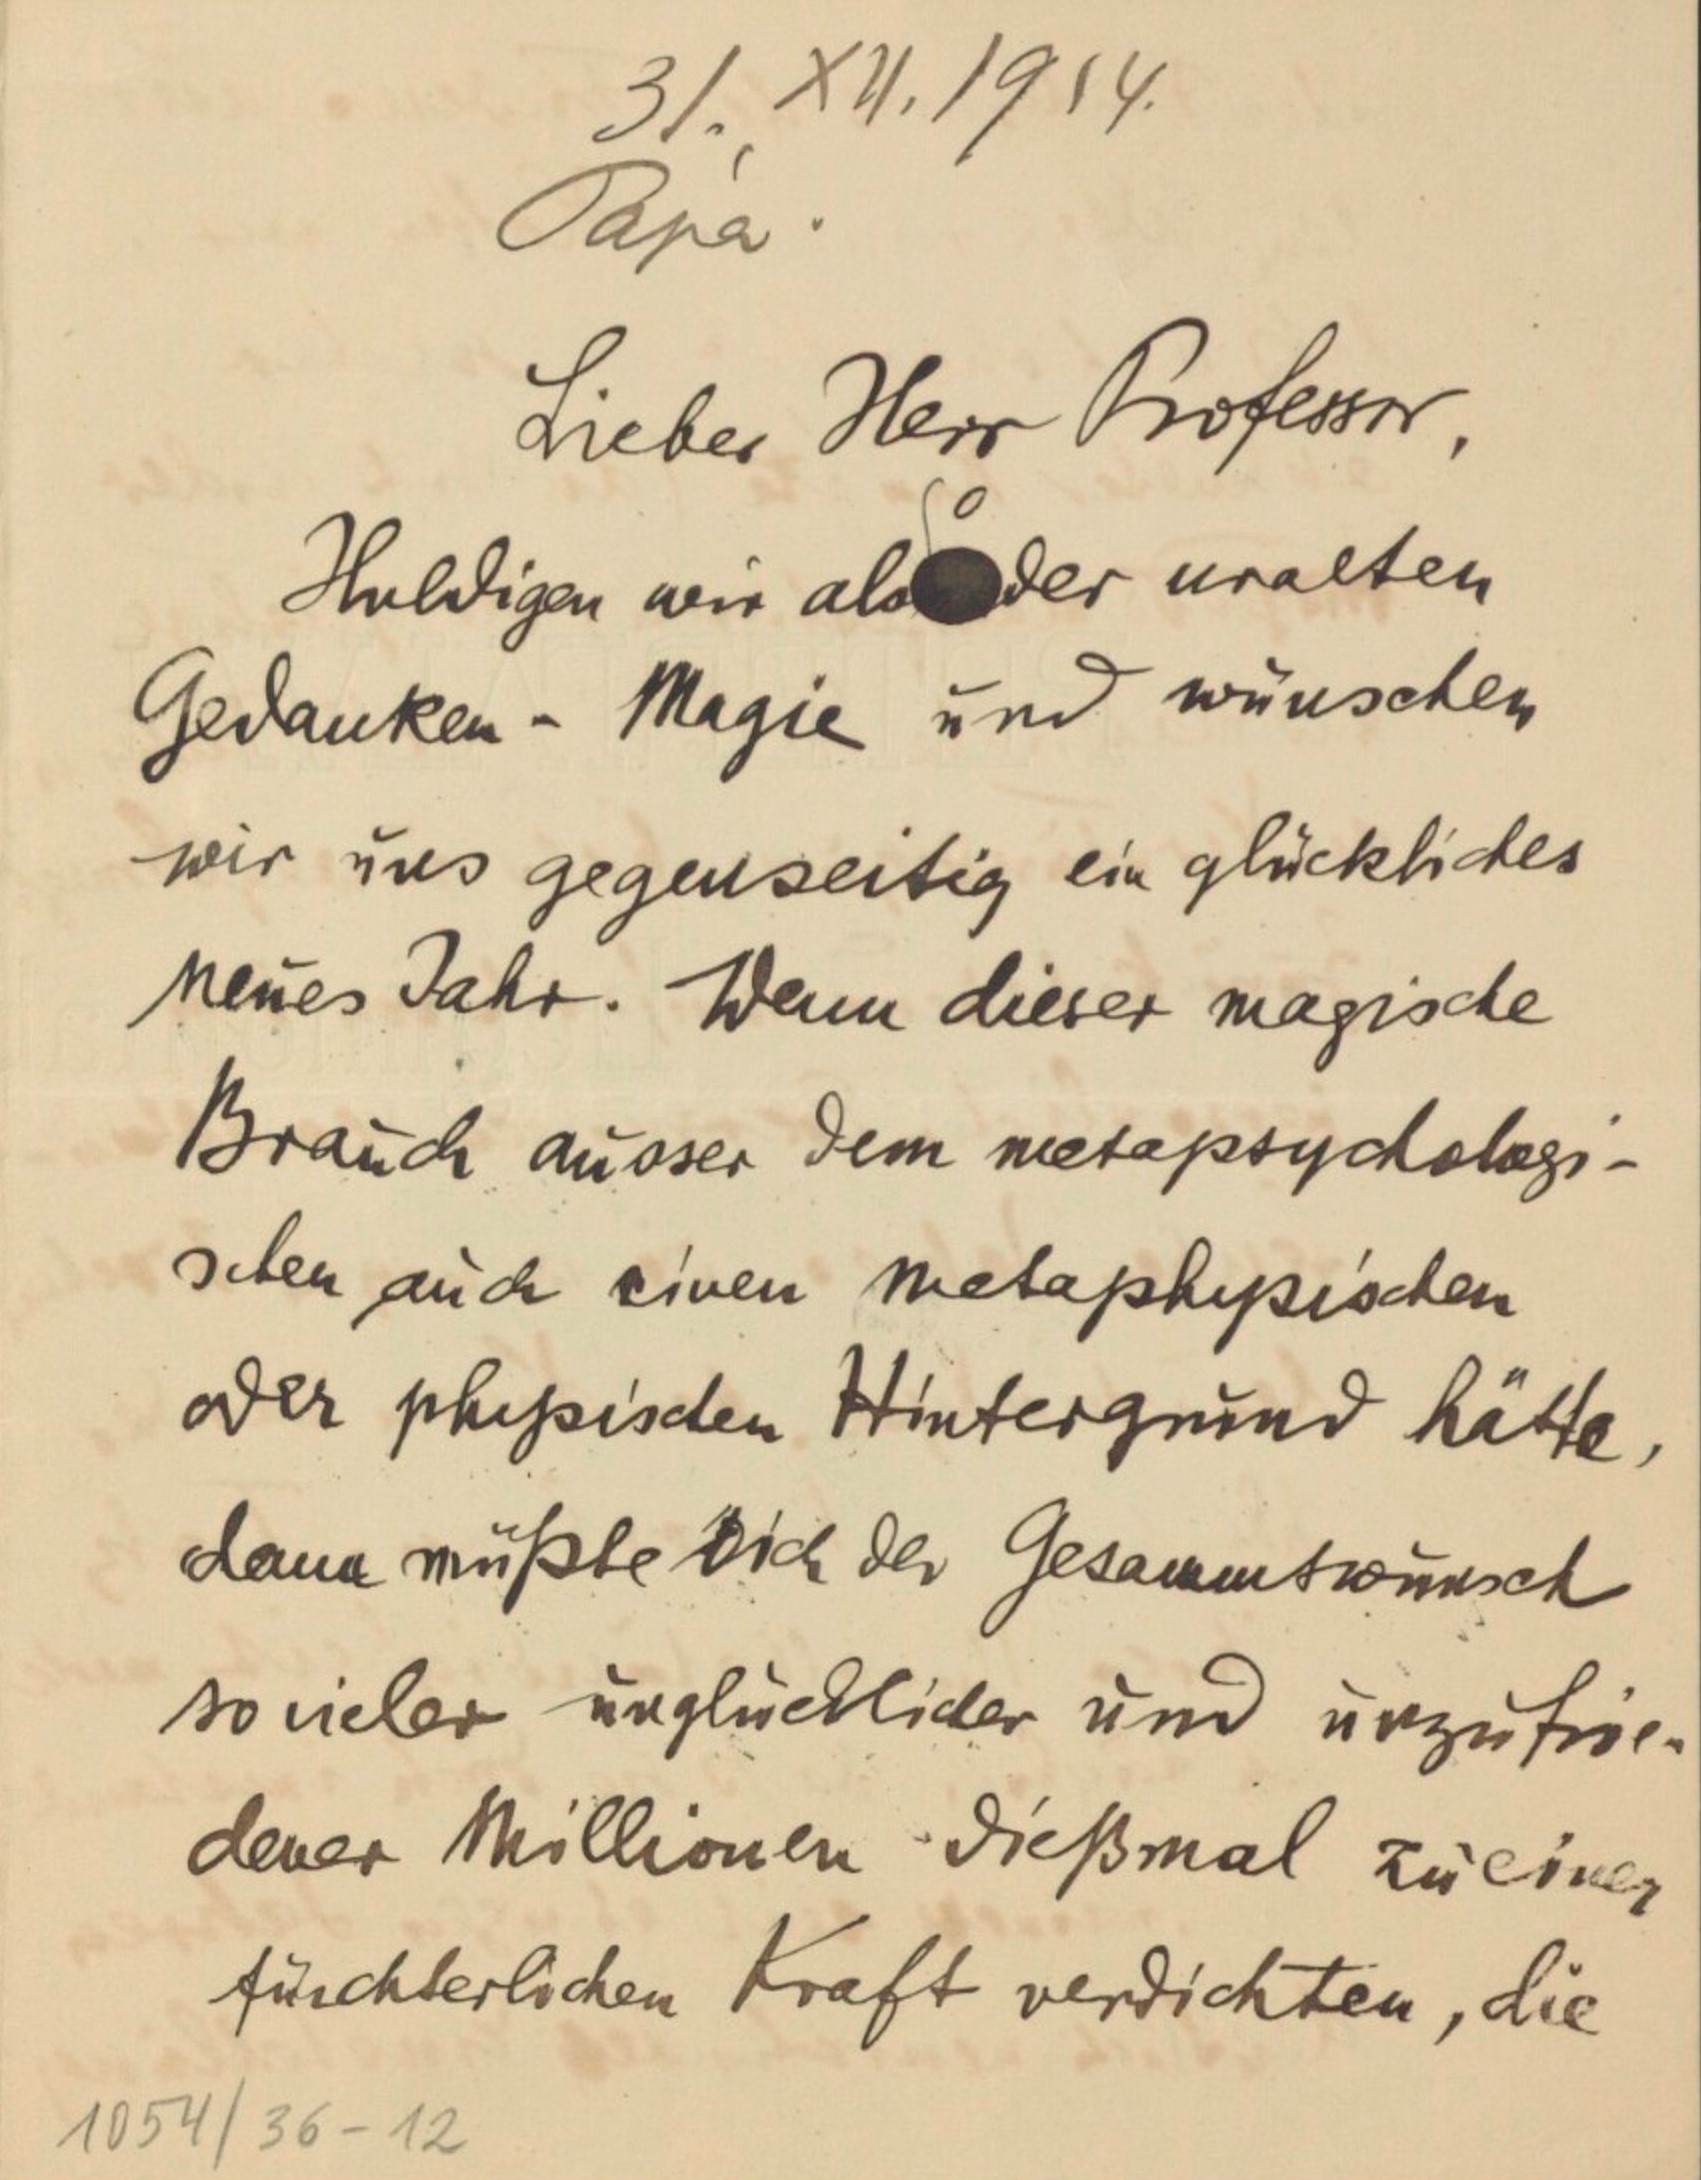 31. XII. 1914.
Pápa.
Lieber Herr Professor,
Huldigen wir also der uralten
Gedanken - Magie und wünschen
wir uns gegenseitig ein glückliches
neues Jahr. Wenn dieser magische
Brauch ausser dem metapsychologi-
schen auch einen metaphysischen
oder physischen Hintergrund hätte,
dann müßte sich der Gesammtwunsch
so vieler unglücklicher und unzufrie-
dener Millionen dießmal zu einer
fürchterlichen Kraft verdichten, die
1054/36-12